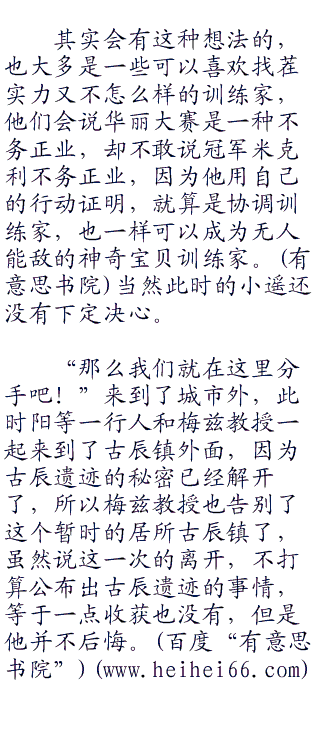 其实会有这种想法的，
也大多是一些可以喜欢找茬
实力又不怎么样的训练家，
他们会说华丽大赛是一种不
务正业，却不敢说冠军米克
利不务正业，因为他用自己
的行动证明，就算是协调训
练家，也一样可以成为无人
能敌的神奇宝贝训练家。(有
意思书院)当然此时的小遥还
没有下定决心。
“那么我们就在这里分
手吧！”来到了城市外，此
时阳等一行人和梅兹教授一
起来到了古辰镇外面，因为
古辰遗迹的秘密已经解开
了，所以梅兹教授也告别了
这个暂时的居所古辰镇了，
虽然说这一次的离开，不打
算公布出古辰遗迹的事情，
等于一点收获也没有，但是
他并不后悔。(百度“有意思
书院”)(www.heihei66.com)